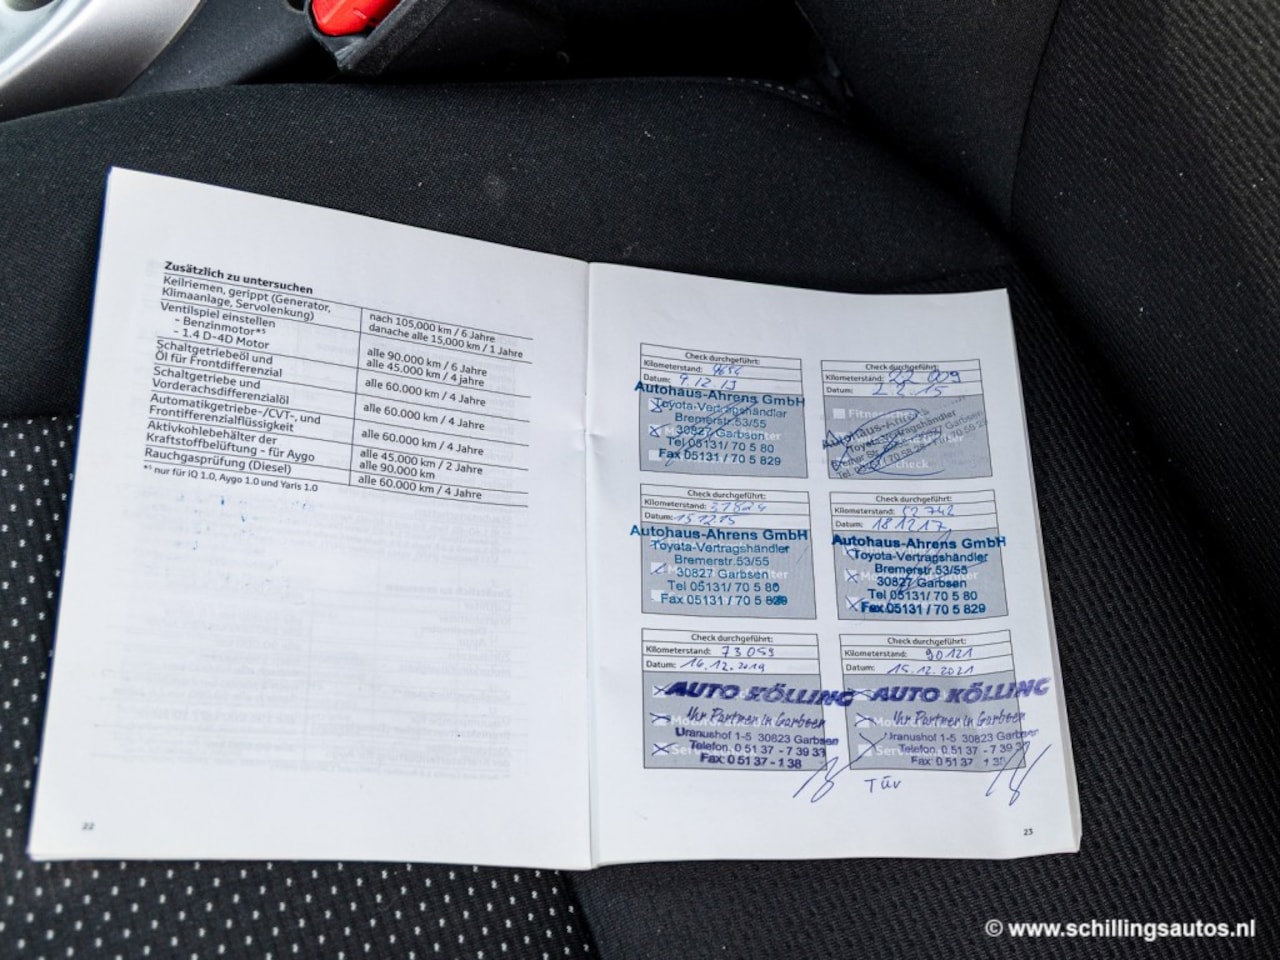 Zusätzlich zu untersuchen
Keilriemen, gerippt (Generator,
Klimaanlage, Servolenkung)
nach 105,000 km / 6 Jahre
danache alle 15,000 km / 1 Jahre
Ventilspiel einstellen
- Benzinmotor*⁵
- 1.4 D-4D Motor
alle 90.000 km / 6 Jahre
alle 45.000 km / 4 jahre
Schaltgetriebeöl und
Öl für Frontdifferenzial
alle 60.000 km / 4 Jahre
Schaltgetriebe und
Vorderachsdifferenzialöl
alle 60.000 km / 4 Jahre
Automatikgetriebe-/CVT-, und
Frontdifferenzialflüssigkeit
alle 60.000 km / 4 Jahre
Aktivkohlebehälter der
Kraftstoffbelüftung - für Aygo
alle 45.000 km / 2 Jahre
alle 90.000 km
Rauchgasprüfung (Diesel)
alle 60.000 km / 4 Jahre
*⁵ nur für iQ 1.0, Aygo 1.0 und Yaris 1.0
22
Check durchgeführt:
Kilometerstand:
Datum: 9.12.13
Autohaus-Ahrens GmbH
Toyota-Vertragshändler
Bremerstr.53/55
30827 Garbsen
Tel 05131/ 70 5 80
Fax 05131/ 70 5 829
Check durchgeführt:
Kilometerstand: 22 009
Datum: 2.2.15
Autohaus-Ahrens
Toyota-Vertragshändler
Check durchgeführt:
Kilometerstand: 31824
Datum: 15.12.15
Autohaus-Ahrens GmbH
Toyota-Vertragshändler
Bremerstr.53/55
30827 Garbsen
Tel 05131/ 70 5 80
Fax 05131/ 70 5 829
Check durchgeführt:
Kilometerstand: 52742
Datum: 18.12.17
Autohaus-Ahrens GmbH
Toyota-Vertragshändler
Bremerstr.53/55
30827 Garbsen
Tel 05131/ 70 5 80
Fax 05131/ 70 5 829
Check durchgeführt:
Kilometerstand: 73059
Datum: 16.12.2019
AUTO KÖLLING
Ihr Partner in Garbsen
Uranushof 1-5 30823 Garbsen
Telefon. 0 51 37 - 7 39 33
Fax: 0 51 37 - 1 38
Check durchgeführt:
Kilometerstand: 90121
Datum: 15.12.2021
AUTO KÖLLING
Ihr Partner in Garbsen
Uranushof 1-5 30823 Garbsen
Telefon. 0 51 37 - 7 39 3
Fax: 0 51 37 - 1 38
TÜV
23
© www.schillingsautos.nl